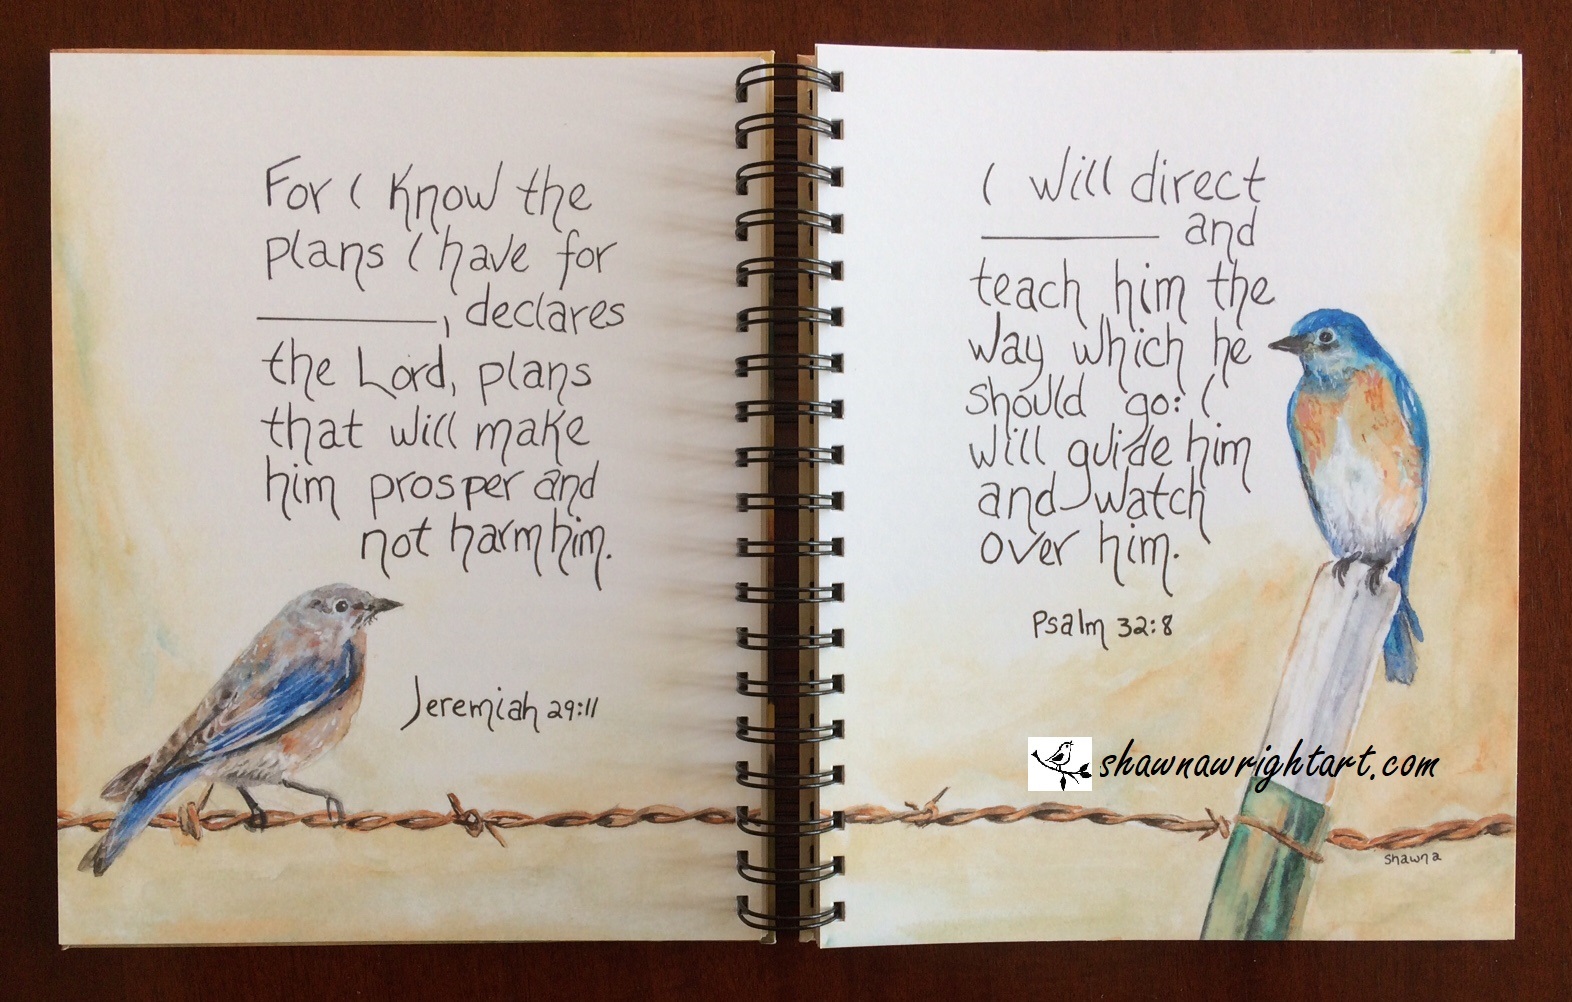 For I know the
plans I have for
__________, declares
the Lord, plans
that will make
him prosper and
not harm him.
Jeremiah 29:11
I will direct
__________ and
teach him the
way which he
should go: I
will guide him
and watch
over him.
Psalm 32:8
shawnawrightart.com
shawna